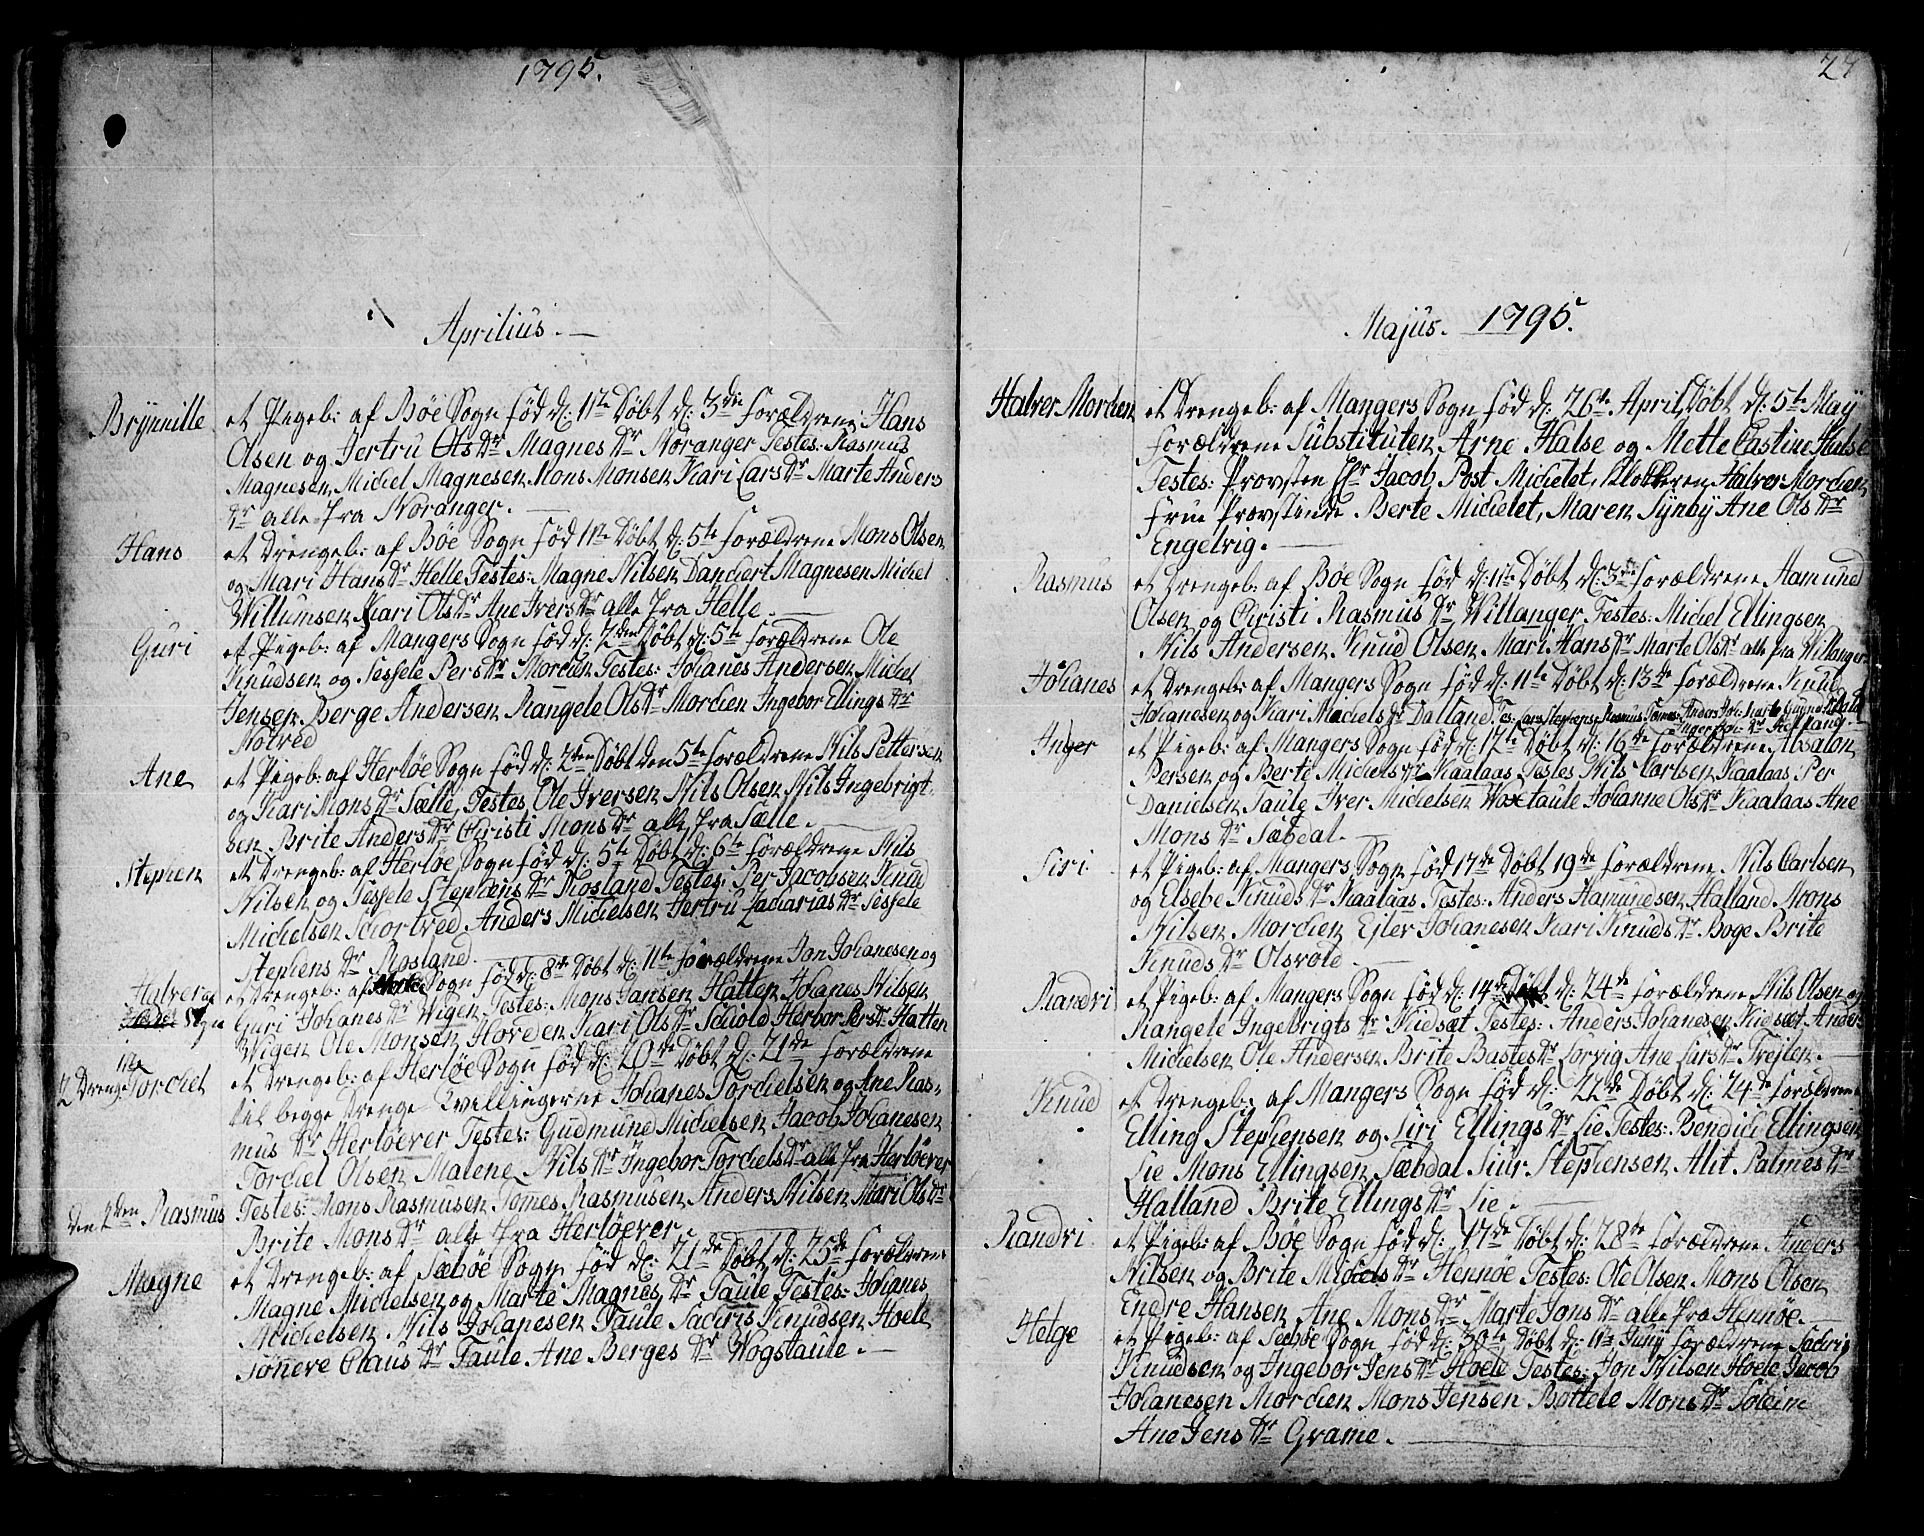 1795.
Aprilius. —
Brynnille
et Pigeb: af Böe Sogn föd d: 11te Döbt d: 3de forældrene Hans
Olsen og Jertru Ols Dr Magnes Dr Noranger Testes: Rasmus
Magnesen Michel Magnesen Mons Monsen Kari Lars Dr Marte Anders
Dr alle fra Noranger. —
Hans
et Drengeb: af Böe Sogn föd 11te Döbt d: 5te forældrene Mons Olsen
og Mari Hans Dr Helle Testes: Magne Nilsen Danchert Magnesen Michel
Willumsen Kari Ols Dr Ane Ivers Dr alle fra Helle. —
Guri
et Pigeb: af Mangers Sogn föd d: 2den Döbt d: 5te forældrene Ole
Knudsen og Sessele Pers Dr Mordien Testes: Johanes Andersen Michel
Jensen Berge Andersen Rangele Ols Dr Mordien Ingebor Ellings Dr
Notved
Ane
et Pigeb: af Herlöe Sogn föd d: 2den Döbt den 5te forældrene Nils Pettersen
og Kari Mons Dr Sælle, Testes Ole Iversen Nils Olsen Nils Ingebrigt-
sen Brite Anders Dr Christi Mons Dr alle fra Sælle. —
Stephen
et Drengeb: af Herlöe Sogn föd d: 5te Döbt d: 6te forældrene Nils
Nilsen og Sessele Stephens Dr Rosland Testes: Per Jacobsen Knud
Michelsen Schortved Anders Michelsen Jertru Zacharias Dr Sessele
Stephens Dr Rosland. —
Halver
et Drengeb: af Sogn föd d: 8de Döbt d: 11te forældrene Jon Johanesen og
Sogn
Guri Johanes Dr Wigen Testes: Mons Jansen Hatten Johanes Nilsen
Wigen Ole Monsen Horden Kari Ols Dr Schold Herbor Pers Dr Hatten
2 Drenge
1te Torchel
et Drengeb: af Herlöe Sogn föd d: 20de Döbt d: 21de forældrene
til begge Drenge Tvillingerne Johanes Torchelsen og Ane Ras-
mus Dr Herlöever Testes: Gudmund Michelsen Jacob Johanesen
Torchel Olsen Malene Nils Dr Ingebor Torchels Dr alle fra Herlöever
den 2den Rasmus
Testes: Mons Rasmusen Tomes Rasmusen Anders Nilsen Mari Ols Dr
Brite Mons Dr alle fra Herlöever. —
Magne
et Drengeb: af Sæböe Sogn föd d: 21de Döbt d: 25de forældrene
Magne Michelsen og Marte Magnes Dr Taule Testes: Johanes
Michelsen Nils Johanesen Taule Sachris Knudsen Hoele
Sönneve Claus Dr Taule Ane Berges Dr Wogstaule. —
27
Majus. 1795.
Halver Mordien
et Drengeb: af Mangers Sogn föd d: 26te April Döbt d: 5te May
forældrene Substituten Arne Halse og Mette Castine Halse
Testes: Provsten Hr Jacob Post Michelet, Klokkeren Halver Mordien
Frue Provstinde Berte Michelet, Maren Synby Ane Ols Dr
Engelvig. —
Rasmus
et Drengeb: af Böe Sogn föd d: 11te Döbt d: 3de forældrene Aamund
Olsen og Christi Rasmus Dr Willanger Testes: Michel Ellingsen
Nils Andersen Knud Olsen Mari Hans Dr Marte Ols Dr alle fra Willanger
Johanes
et Drengeb: af Mangers Sogn föd d: 11te Döbt d: 13de forældrene Knud
Johanesen og Kari Michels Dr Dalland
Anger
et Pigeb: af Mangers Sogn föd d: 12te Döbt d: 16de forældrene Absalon
Persen og Berte Michels Dr Kaalaas Testes Nils Carlsen Kaalaas Per
Danielsen Taule Iver Michelsen Woxtaule Johanne Ols Dr Kaalaas Ane
Mons Dr Sæbdal. —
Siri
et Pigeb: af Mangers Sogn föd 17de Döbt 19de forældrene Nils Carlsen
og Elsebe Knuds Dr Kaalaas Testes: Anders Aamundsen Halland Mons
Nilsen Mordien Ejler Johanesen Kari Knuds Dr Boge Brite
Knuds Dr Olsvold. —
Randri
et Pigeb: af Mangers Sogn föd d: 14de Döbt d: 24de forældrene Nils Olsen og
Rangele Ingebrigts Dr Kidsæt Testes: Anders Johanesen Kidsæt Anders
Michelsen Ole Andersen Brite Bastes Dr Torvig Ane Lars Dr Trejlen. —
Knud
et Drengeb: af Mangers Sogn föd d: 22de Döbt d: 24de forældrene
Elling Stephensen og Siri Ellings Dr Lie Testes: Bendict Ellingsen
Lie Mons Ellingsen Sæbdal Siur Stephensen Alit Palmes Dr
Halland Brite Ellings Dr Lie. —
Randri
et Pigeb: af Böe Sogn föd d: 17de Döbt d: 28de forældrene Anders
Nilsen og Brite Michels Dr Hennöe Testes: Ole Olsen Mons Olsen
Endre Hansen Ane Mons Dr Marte Jons Dr alle fra Hennöe. —
Helge
et Pigeb: af Sæböe Sogn föd d: 30te Döbt d: 11te Juny forældrene Sachris
Knudsen og Ingebor Jens Dr Hoele Testes: Jon Nilsen Hoele Jacob
Johanesen Mordien Mons Jensen Bottele Mons Dr Soleim
Ane Jens Dr Grame. —